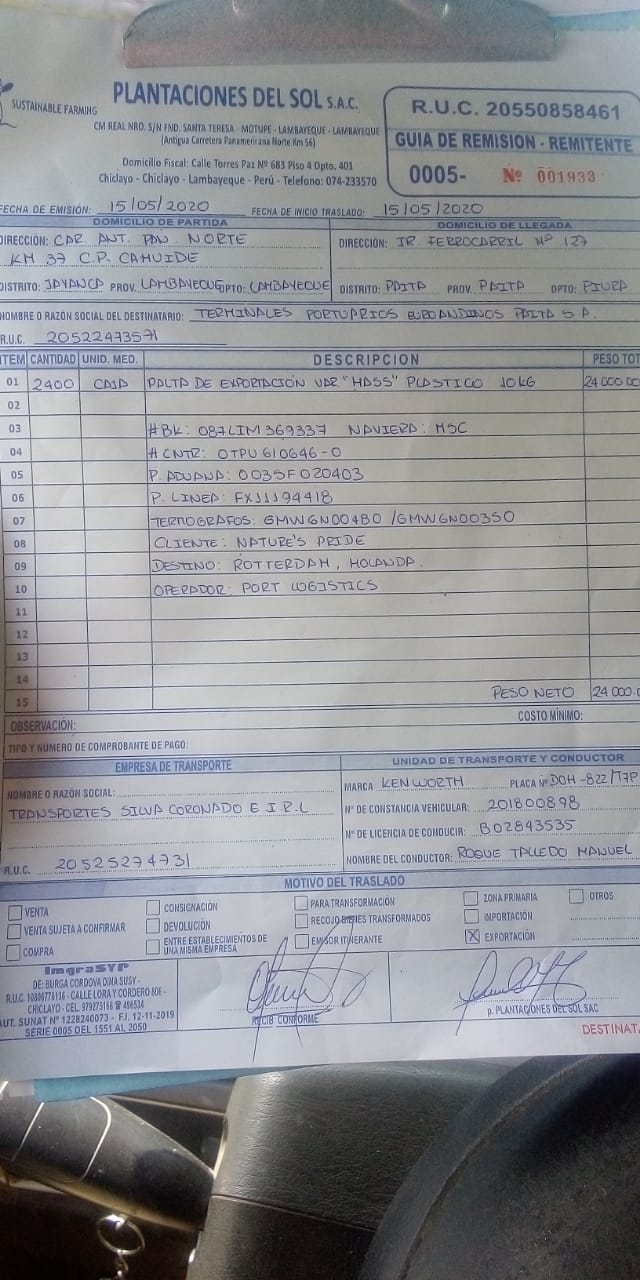 SUSTAINABLE FARMING
PLANTACIONES DEL SOL S.A.C.
CM REAL NRO. S/N FND. SANTA TERESA - MOTUPE - LAMBAYEQUE - LAMBAYEQUE
(Antigua Carretera Panamericana Norte Km 56)
Domicilio Fiscal: Calle Torres Paz Nº 683 Piso 4 Dpto. 401
Chiclayo - Chiclayo - Lambayeque - Perú - Telefono: 074-233570
R.U.C. 20550858461
GUIA DE REMISION - REMITENTE
0005- Nº 001933
FECHA DE EMISIÓN: 15/05/2020 FECHA DE INICIO TRASLADO: 15/05/2020
DOMICILIO DE PARTIDA
DIRECCIÓN: CAR. ANT. PAN. NORTE
KM 37 C.P. CAHUIDE
DISTRITO: JAYANCA PROV. LAMBAYEQUE DPTO: LAMBAYEQUE
DOMICILIO DE LLEGADA
DIRECCIÓN: JR FERROCARRIL Nº 127
DISTRITO: PAITA PROV. PAITA DPTO: PIURA
NOMBRE O RAZÓN SOCIAL DEL DESTINATARIO: TERMINALES PORTUARIOS EUROANDINOS PAITA S A.
R.U.C. 20522473571
ITEM CANTIDAD UNID. MED. DESCRIPCION PESO TOT
01 2400 CAJA PALTA DE EXPORTACIÓN VAR "HASS" PLASTICO 10KG 24000.00
02
03 # BK: 087LIM369337 NAVIERA: MSC
04 # CNTR: OTPU 610646-0
05 P. ADUANA: 0035F020403
06 P. LINEA: FX11194418
07 TERMOGRAFOS: GMWGN004B0 / GMWGN00350
08 CLIENTE: NATURE'S PRIDE
09 DESTINO: ROTTERDAM, HOLANDA.
10 OPERADOR: PORT LOGISTICS
11
12
13
14
15 PESO NETO 24 000.0
OBSERVACIÓN: COSTO MÍNIMO:
TIPO Y NÚMERO DE COMPROBANTE DE PAGO:
EMPRESA DE TRANSPORTE
NOMBRE O RAZÓN SOCIAL:
TRANSPORTES SILVA CORONADO E.I.R.L
R.U.C. 20525274731
UNIDAD DE TRANSPORTE Y CONDUCTOR
MARCA KENWORTH PLACA Nº DOH-822/T7P
Nº DE CONSTANCIA VEHICULAR: 201800898
Nº DE LICENCIA DE CONDUCIR: B02843535
NOMBRE DEL CONDUCTOR: ROQUE TALLEDO MANUEL
MOTIVO DEL TRASLADO
VENTA CONSIGNACIÓN PARA TRANSFORMACIÓN ZONA PRIMARIA OTROS
VENTA SUJETA A CONFIRMAR DEVOLUCIÓN RECOJO BIENES TRANSFORMADOS IMPORTACIÓN
COMPRA ENTRE ESTABLECIMIENTOS DE UNA MISMA EMPRESA EMISOR ITINERANTE X EXPORTACIÓN
ImgraSYP
DE: BURGA CORDOVA DINA SUSY -
R.U.C. 10806776136 - CALLE LORA Y CORDERO 806 -
CHICLAYO - CEL 979275166 ☎ 496534
AUT. SUNAT Nº 1228240073 - F.I. 12-11-2019
SERIE 0005 DEL 1551 AL 2050
RECIBI CONFORME
p. PLANTACIONES DEL SOL SAC
DESTINATA